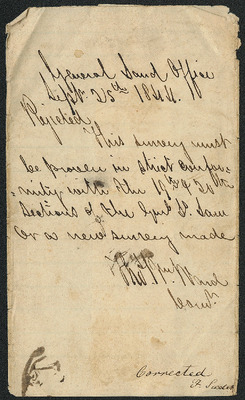 General Land Office
Sept. 25th 1844.
Rejected,
This survey must
be proven in strict confor-
mity with the 19th & 20th
Sections of the Genl. L. Law
or a new survey made
Thos Wm. Ward
Comr.
Corrected